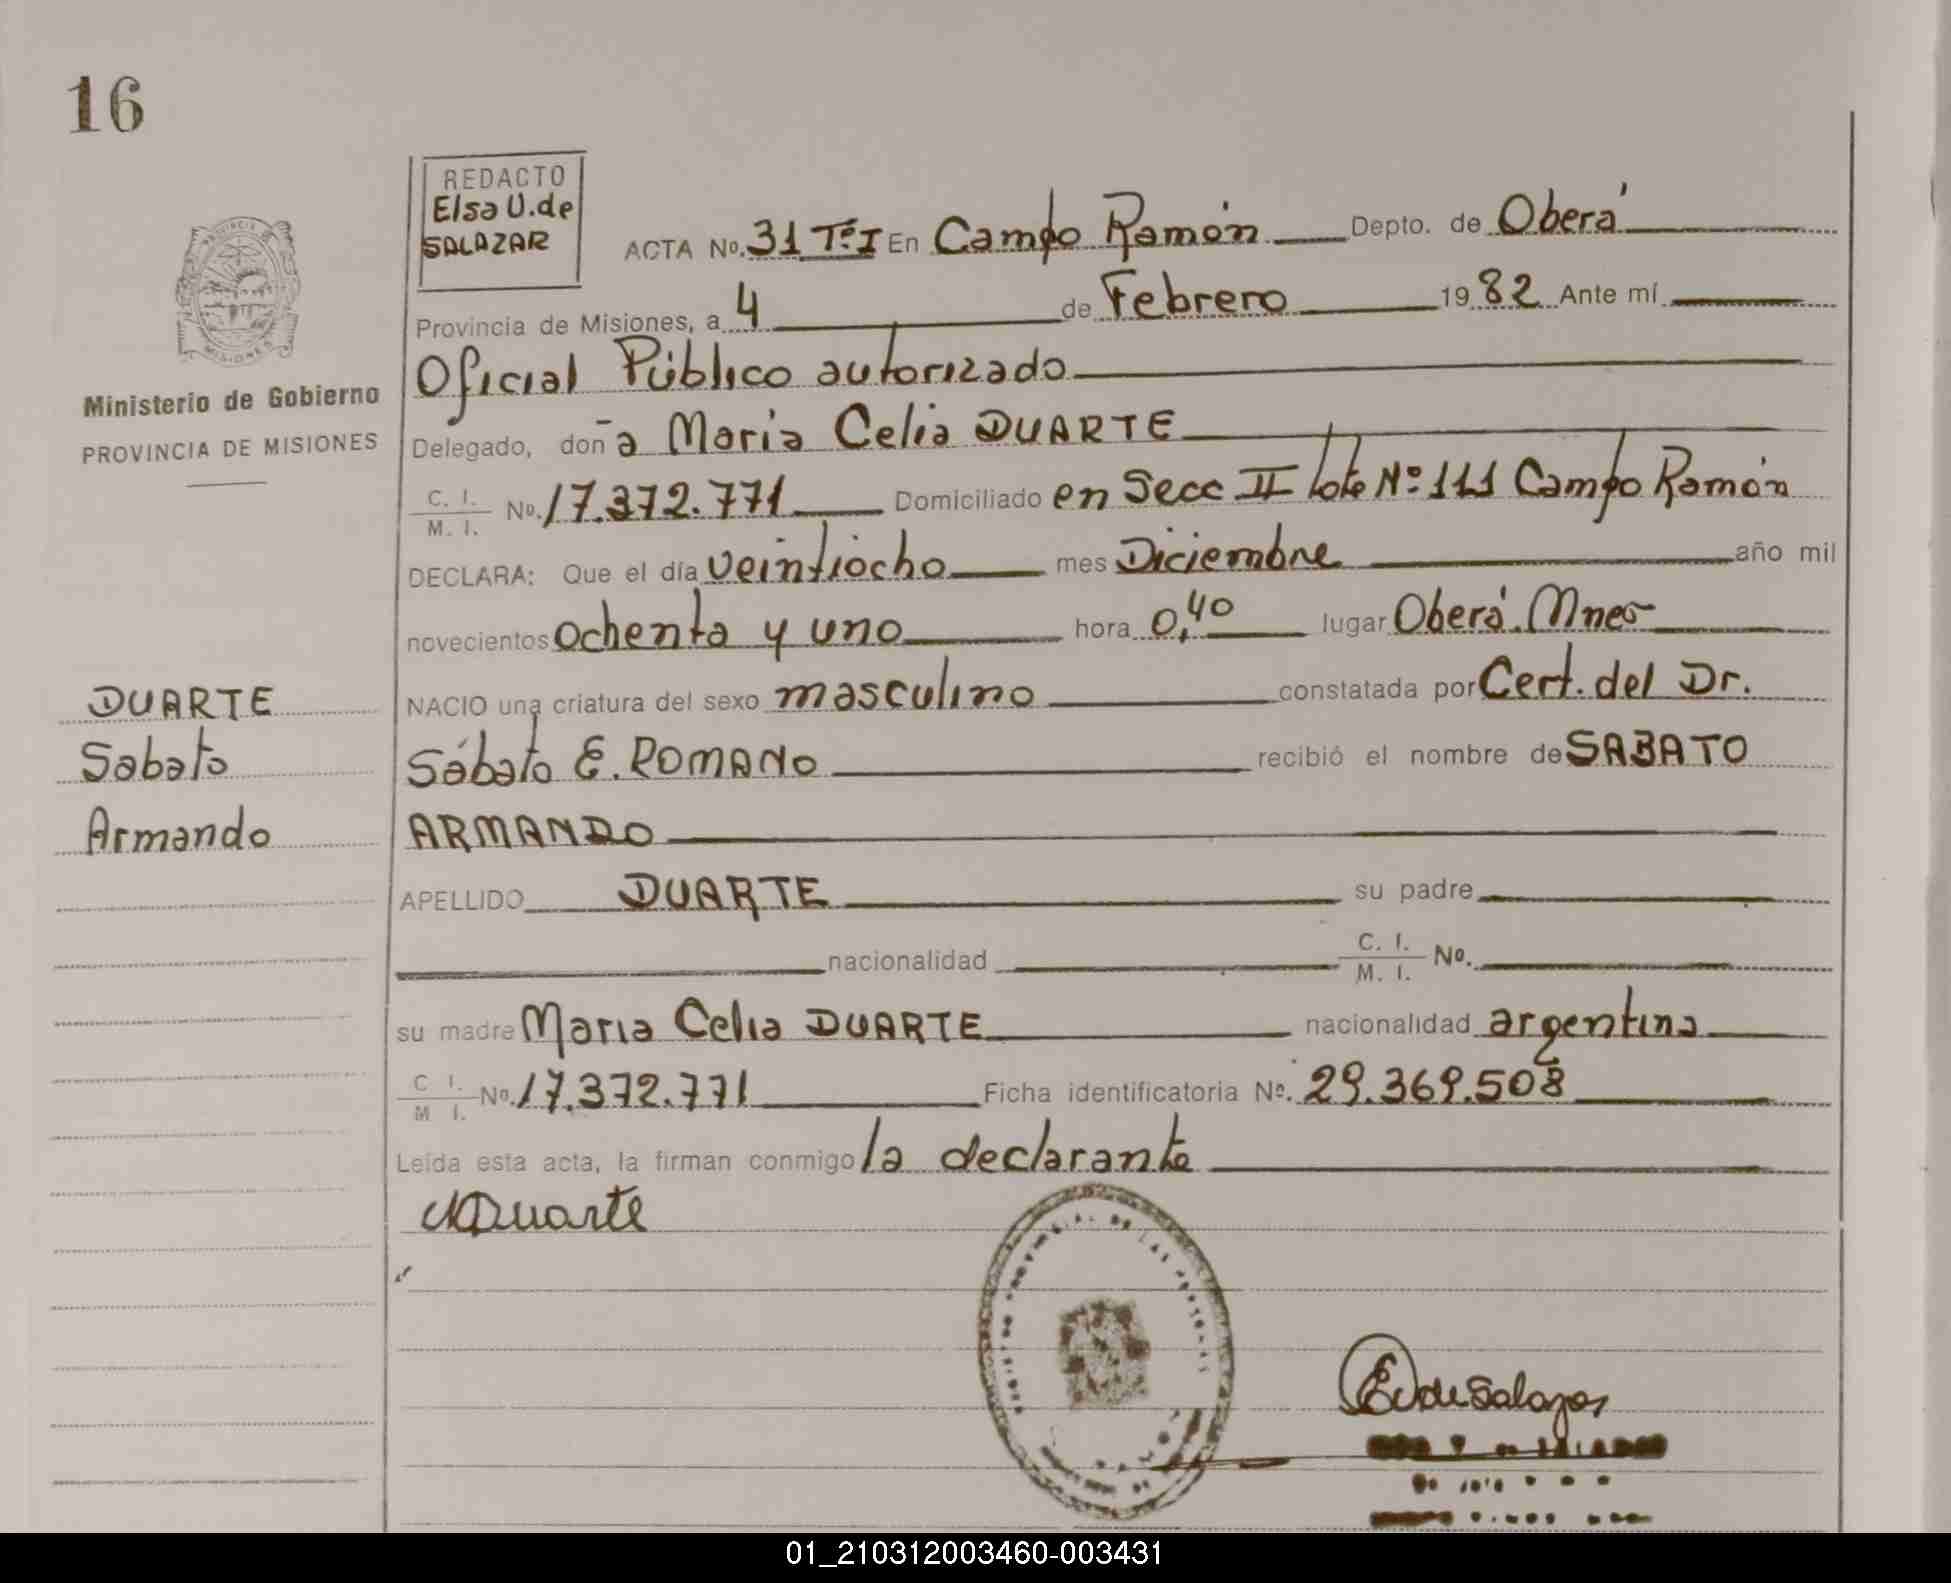 16
REDACTO
Elsa U. de
SALAZAR
ACTA No. 31 Tº I En Campo Ramón Depto. de Oberá
Provincia de Misiones, a 4 de Febrero 19 82 Ante mí
Oficial Público autorizado
Ministerio de Gobierno
PROVINCIA DE MISIONES
Delegado, doña Maria Celia DUARTE
C. I. / M. I. No. 17.372.771 Domiciliado en Secc II lote Nº 111 Campo Ramón
DECLARA: Que el día veintiocho mes Diciembre año mil
novecientos ochenta y uno hora 0,40 lugar Oberá. Mnes
NACIO una criatura del sexo masculino constatada por Cert. del Dr.
Sábato E. ROMANO recibió el nombre de SABATO
ARMANDO
DUARTE
Sabato
Armando
APELLIDO DUARTE su padre
nacionalidad C. I. / M. I. No.
su madre Maria Celia DUARTE nacionalidad argentina
C I. / M I. No. 17.372.771 Ficha identificatoria Nº. 29.369.508
Leída esta acta, la firman conmigo la declarante
MDuarte
EU de Salazar
01_210312003460-003431